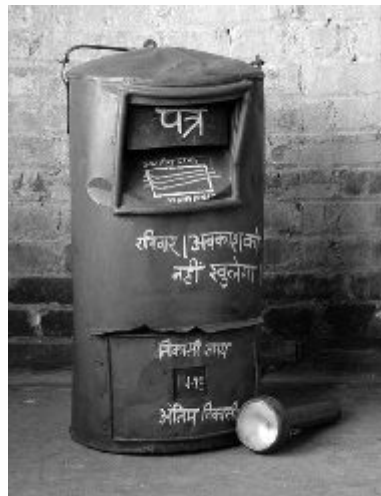 पत्र
रविवार / अवकाश को
नहीं खुलेगा
निकासी
अंतिम निकासी